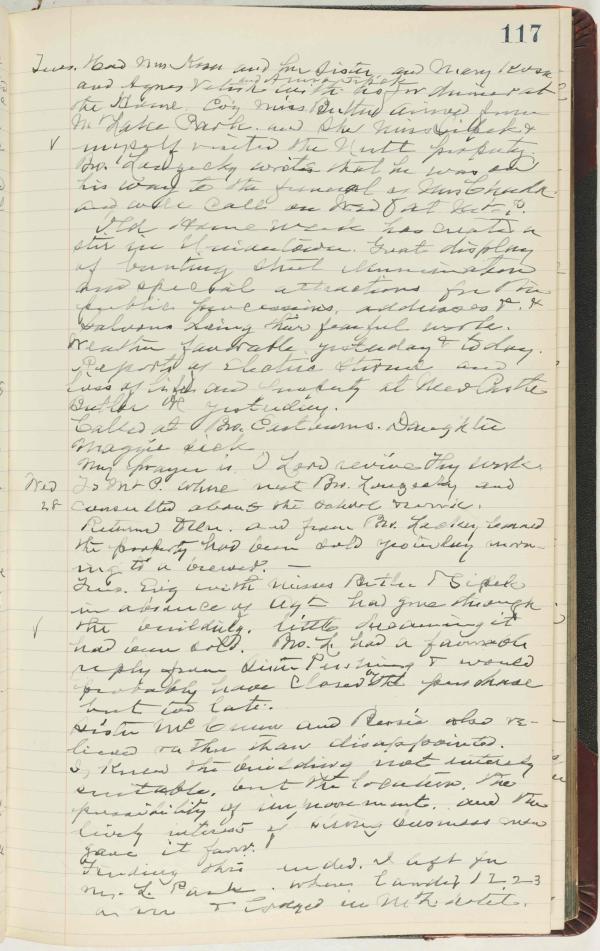 117
Tues. Had Mrs. Koss and her Sister, and Mary Rosa
and Anna
and Agnes with us for dinner at
the Home. Ev'g Miss Butler arrived from
Mt Lake Park. and She Miss Sipek &
myself visited the Nutt property.
Bro. Louzecky writes that he was on
his way to the funeral of Mrs
and will call on Wed at
Old Home Week has created a
stir in Uniontown. Great display
of bunting street illumination
and special attractions for the
public processions, addresses &. &
Saloons doing their fearful work.
Weather favorable yesterday & today.
Reports of Electric Storm and
loss of life and property at New Castle
Butler & yesterday.
Called at Bro. Eastburns. Daughter
Maggie sick
My prayer is, O Lord revive Thy work.
Wed To Mt P. where met Bro. Louzecky and
28 consulted about the school & work.
Return and from Bro. Lackey learned
the property had been sold yesterday morn-
ing to a brewer. —
Tues. Evg with Misses Butler & Sipek
in absence of Agt had gone through
the building. little dreaming it
had been sold. Bro. L. had a favorable
reply from Sister Pershing & would
probably have closed the purchase
but too late.
Sister McCune and Bessie also re-
lieved rather than disappointed.
I knew the building not entirely
suitable, but the location, the
possibility of improvement, and the
lively interest of business men
gave it favor.
Finding this ended. I left for
Mt. L. Park. where landed 12.23
a.m. & lodged in Mt L. Hotel.